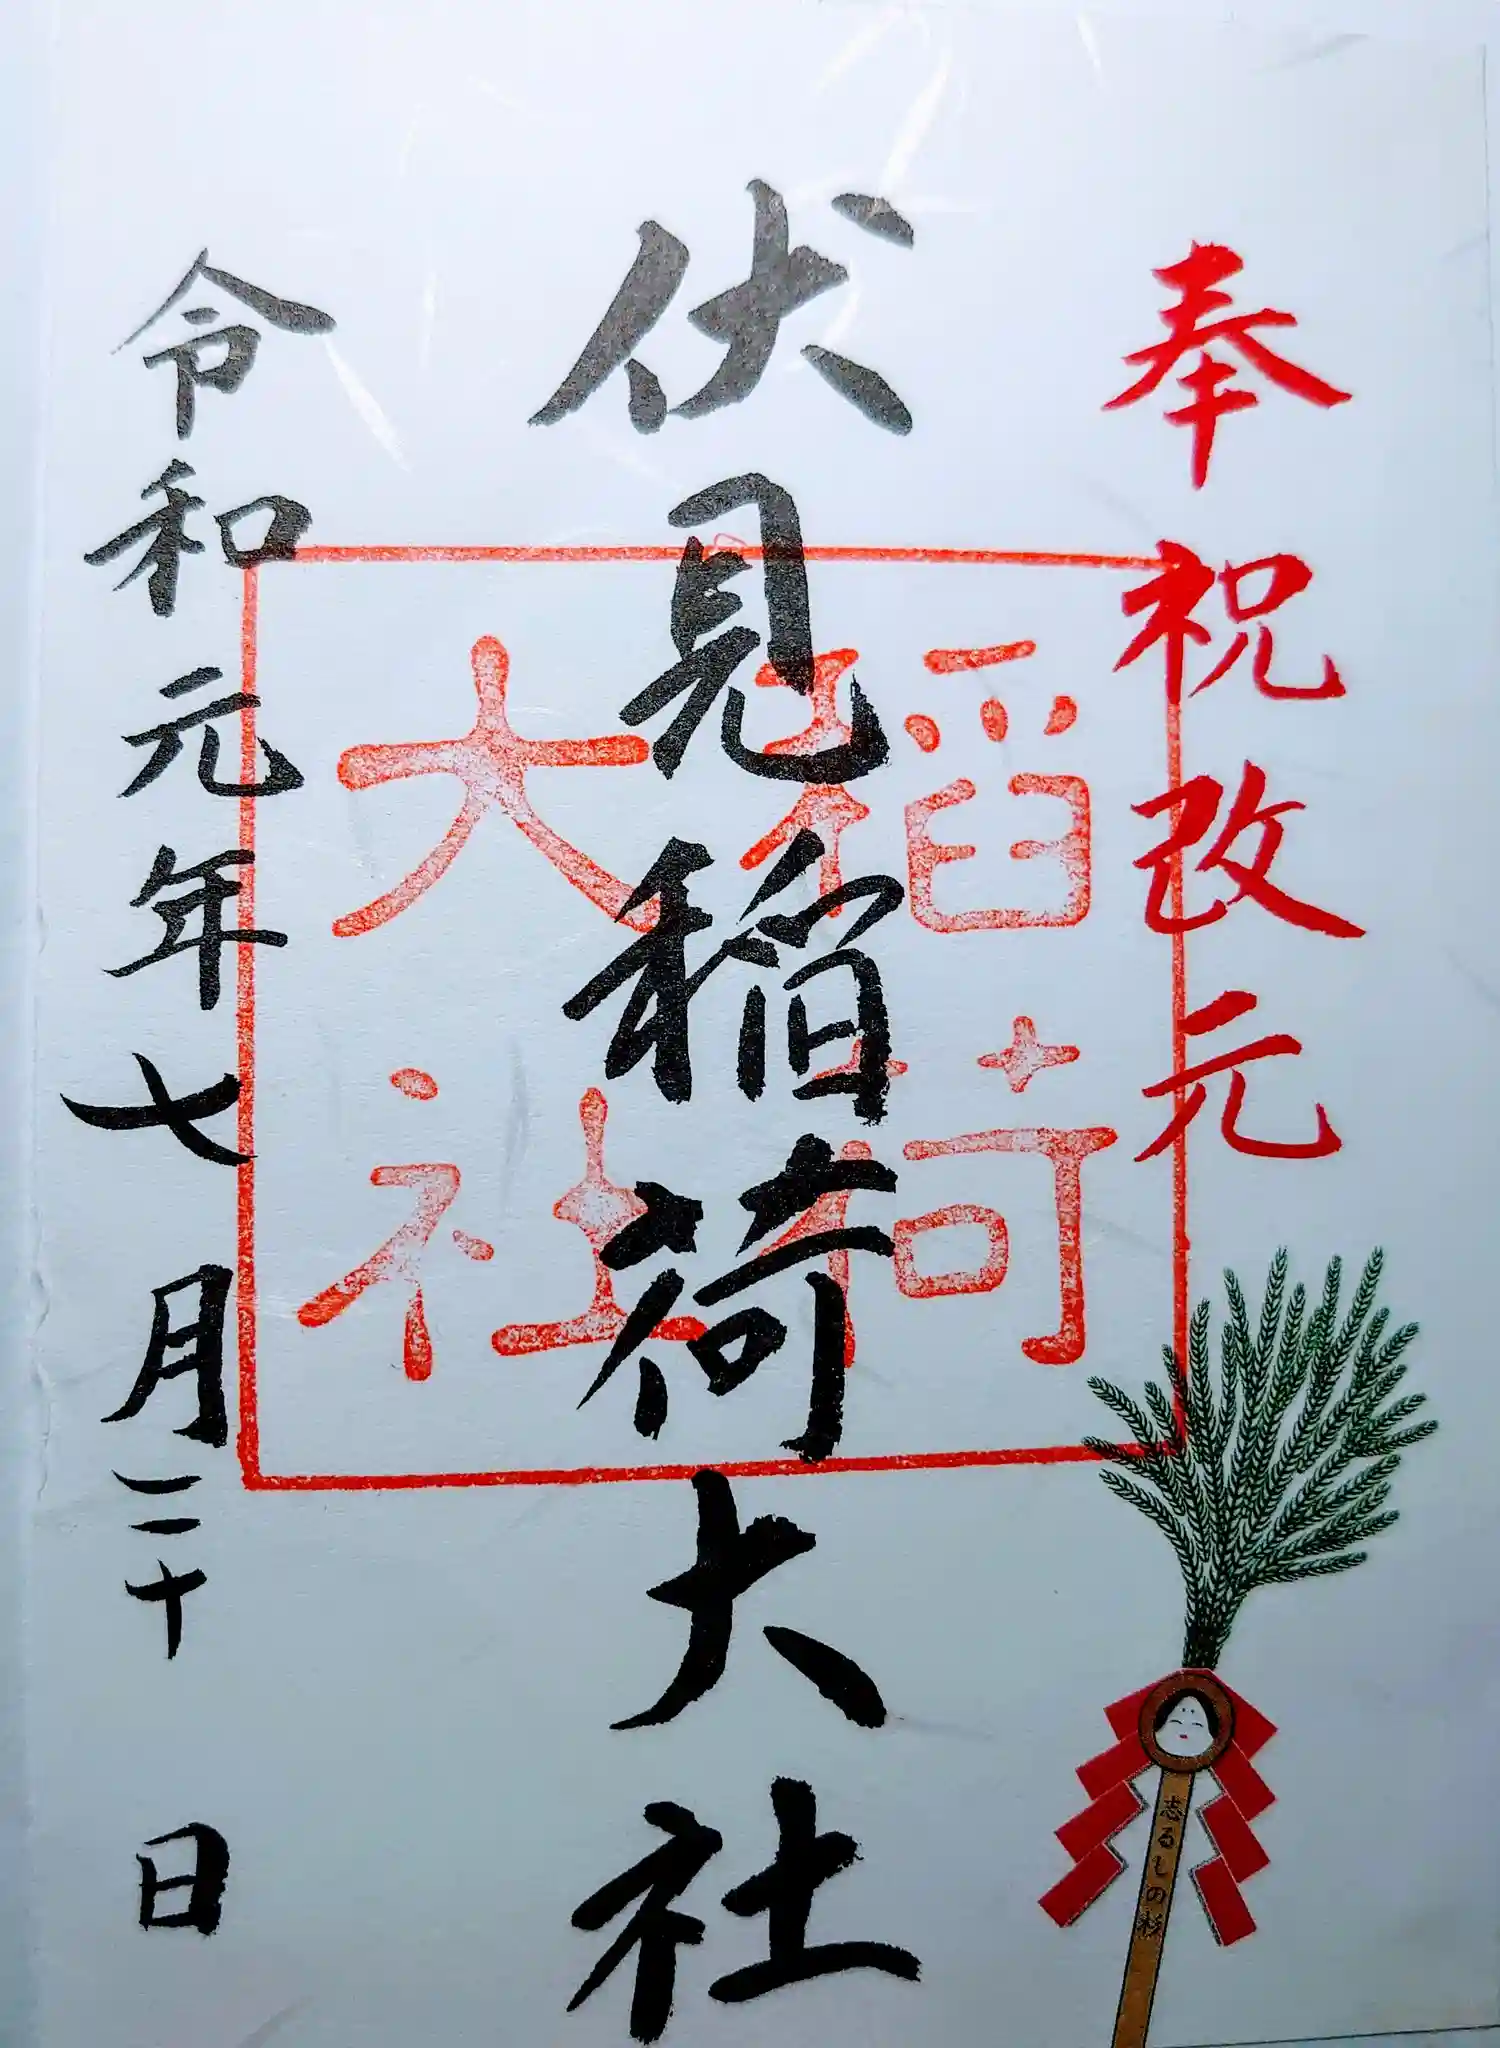 奉祝改元
伏見稲荷大社
稲荷
大社
令和元年七月二十日
志るしの杉